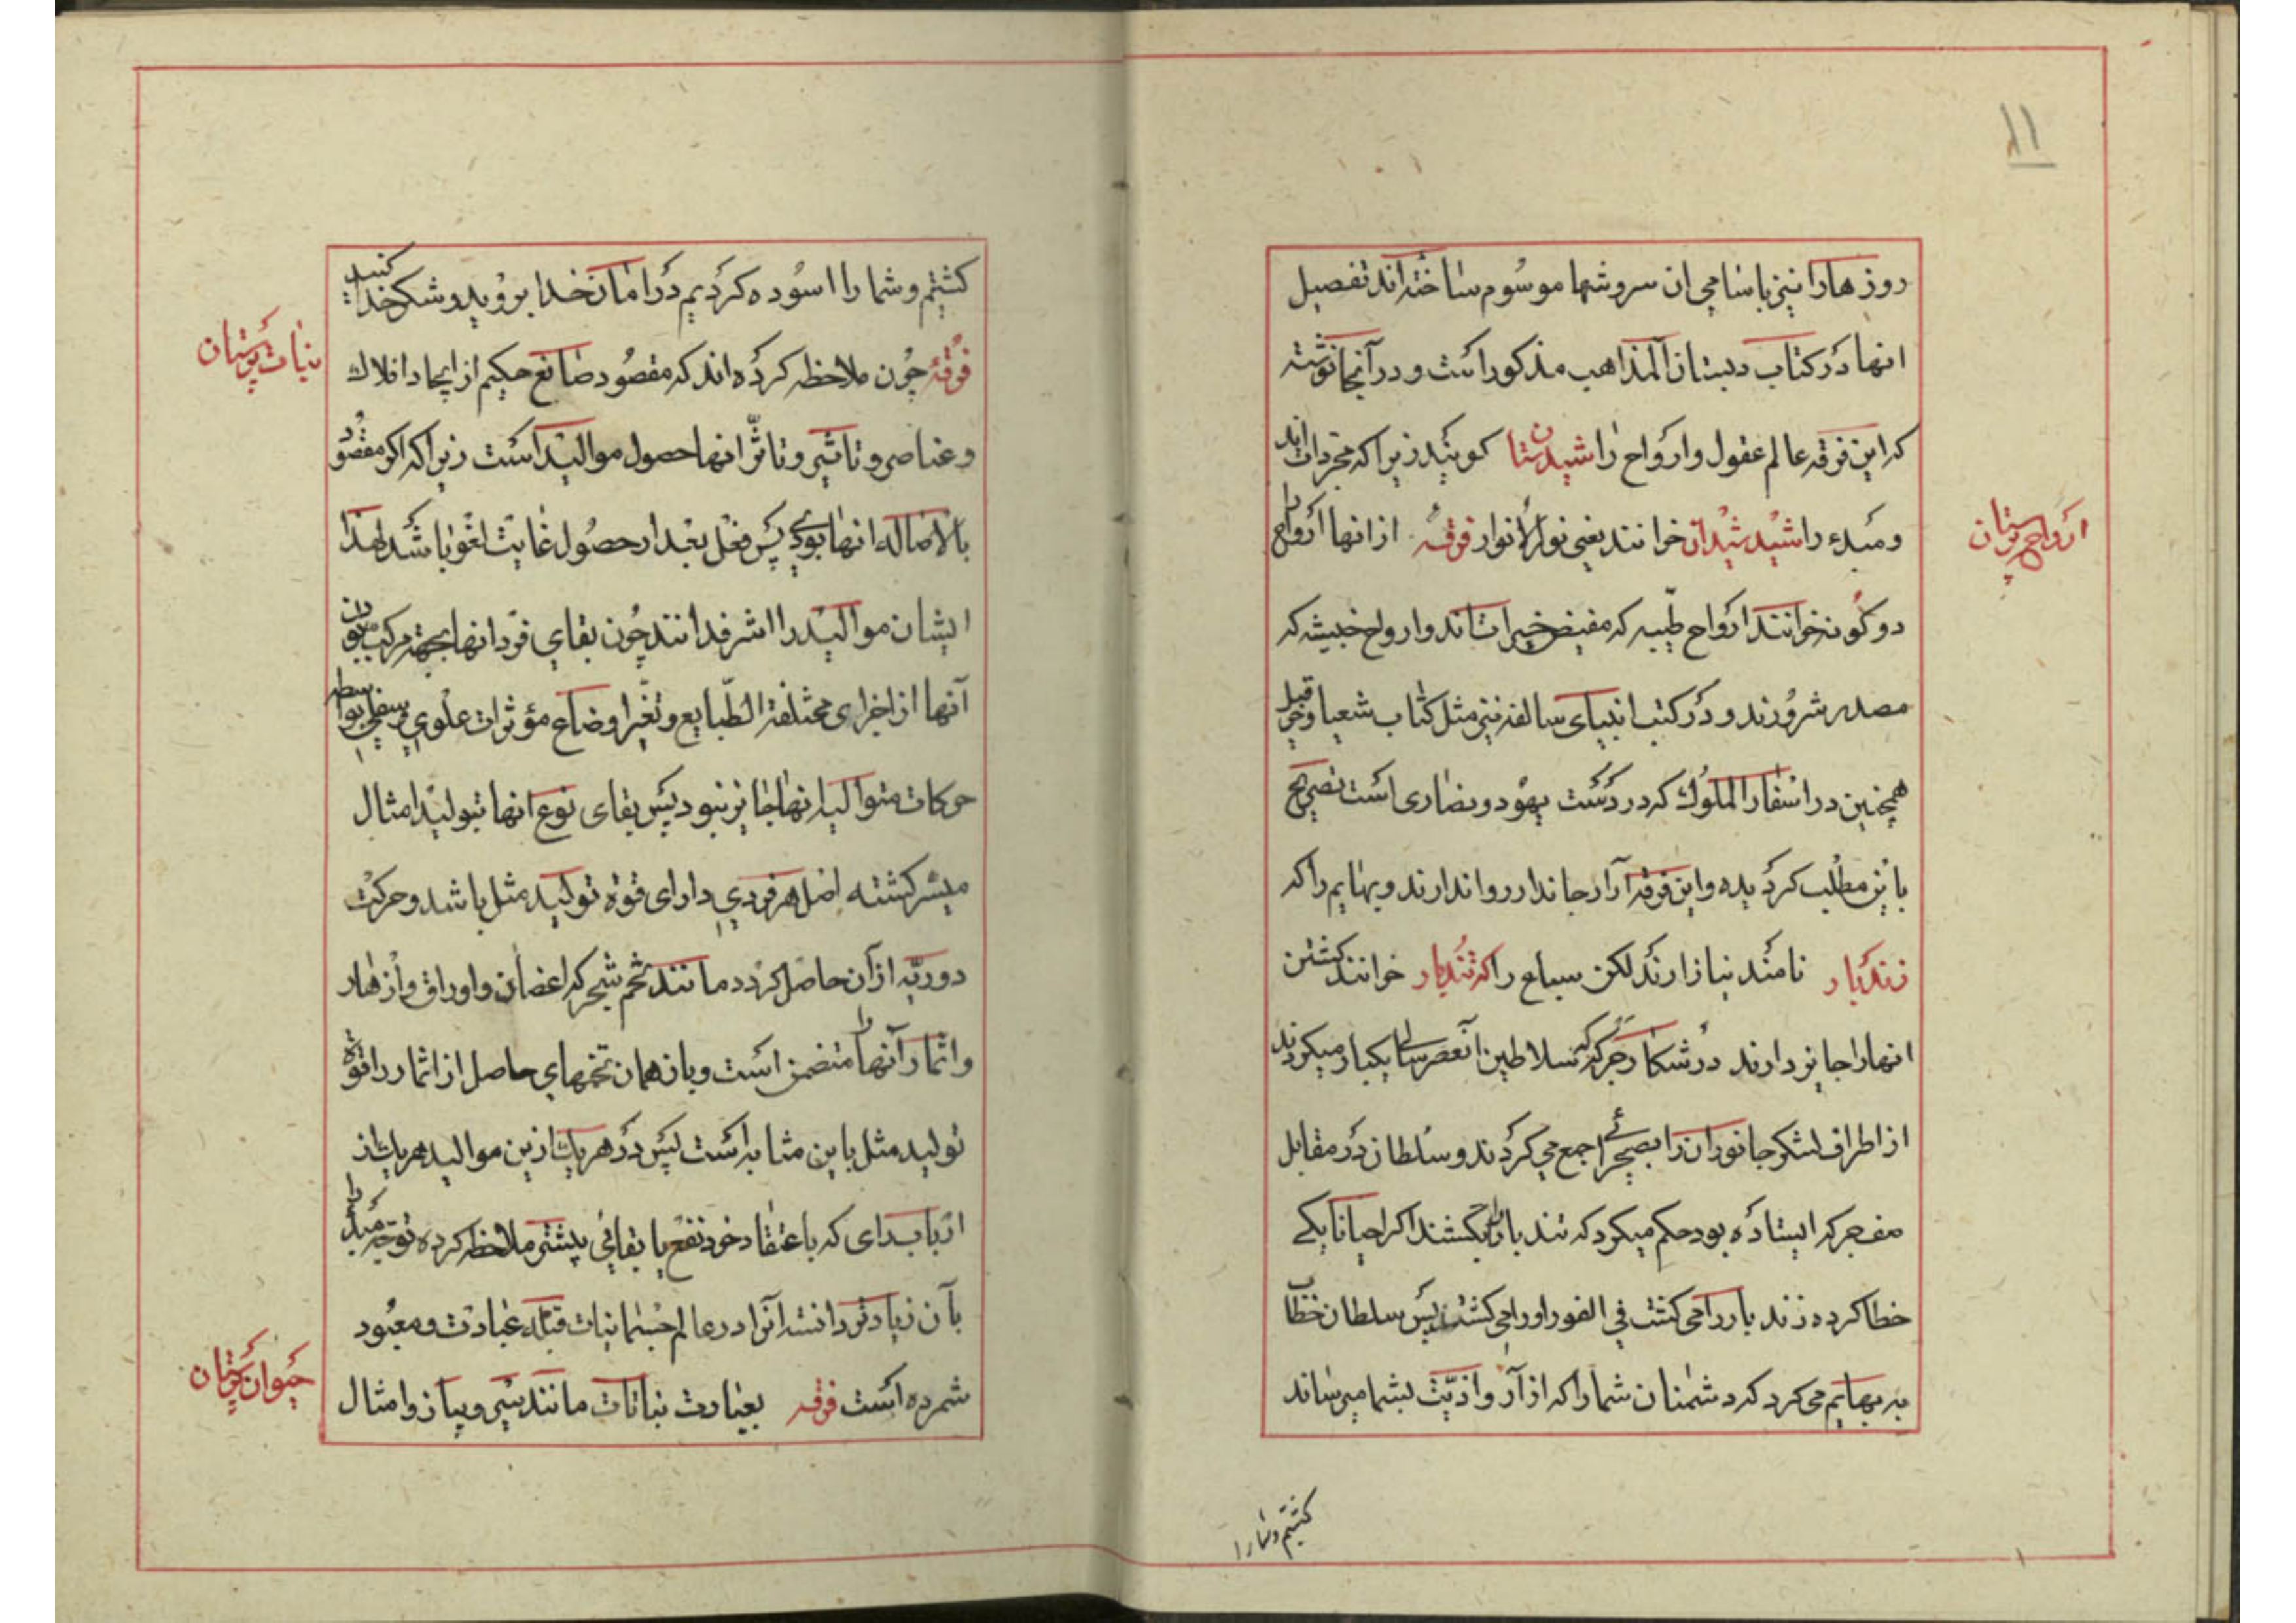 ۱۱
روزهارا نیز باسامی ان سروشها موسوم ساخته‌اند تفصیل
انها در کتاب دبستان المذاهب مذکور است و در آنجا نوشته
که این فرقه عالم عقول و ارواح را شیدستان کویند زیرا که مجردات‌اند
و مبدء را شید شیدان خوانند یعنی نور الانوار فرقه از انها ارواح را
ارواح پرستان
دو کونه خوانند ارواح طیبه که مفیض خیرات‌اند و ارواح خبیثه که
مصدر شرورند و در کتب انبیای سالفه نیز مثل کتاب شعیا و حزقیل
همچنین در اسفار الملوک که در دست یهود و نصاری است تصریح
باین مطلب کردیده و این فرقه آزار جاندار روا ندارند و بهایم را که
زندبار نامند نیازارند لکن سباع را که تندبار خوانند کشتن
انهارا جایز دارند در شکار جرکه که سلاطین آنعصر سالی یکبار میکردند
از اطراف لشکر جانوران را بصحرائی جمع می کردند و سلطان در مقابل
مفر جرکه ایستاده بود حکم میکرد که تندبار را بکشند اکر احیانا یکی
خطا کرده زندبار را می کشت فی الفور او را می کشتند پس سلطان خطاب
به بهایم می کرد که دشمنان شما را که ازار و اذیت بشما میرساند
کشتیم و شما را
کشتیم و شما را اسوده کردیم در امان خدا بروید و شکر خدا کنید
فرقه چون ملاحظه کرده‌اند که مقصود صانع حکیم از ایجاد افلاک
نباتات پرستان
و عناصر و تاثیر و تاثر انها حصول موالید است زیرا که اکر مقصود
بالاصاله انها بودی پس فعل بعد از حصول غایت لغو باشد لهذا
ایشان موالید را اشرف دانند چون بقای فرد انها بجهة مرکب بودن
آنها از اجزای مختلفة الطبایع و تغیر اوضاع مؤثرات علوی و سفلی بواسطه
حرکات متوالیه انها جایز نبود پس بقای نوع انها بتولید امثال
میسر کشته اصل هر فردی دارای قوة تولید مثل باشد و حرکت
دوریه از آن حاصل کردد مانند تخم شجر که اغصان و اوراق و ازهار
و اثمار آنها را متضمن است و بازهمان تخمهای حاصل از اثمار را قوة
تولید مثل باین مثابه است پس در هر یک ازین موالید هر یک از
ارباب رای که باعتقاد خود نفع یا بقائی بیشتر ملاحظه کرده توجه مبدا را
بآن زیادتر دانسته آنرا در عالم جسمانیات قبله عبادت و معبود
شمرده است فرقه بعبادت نباتات مانند سیر و پیاز و امثال
حیوان پرستان